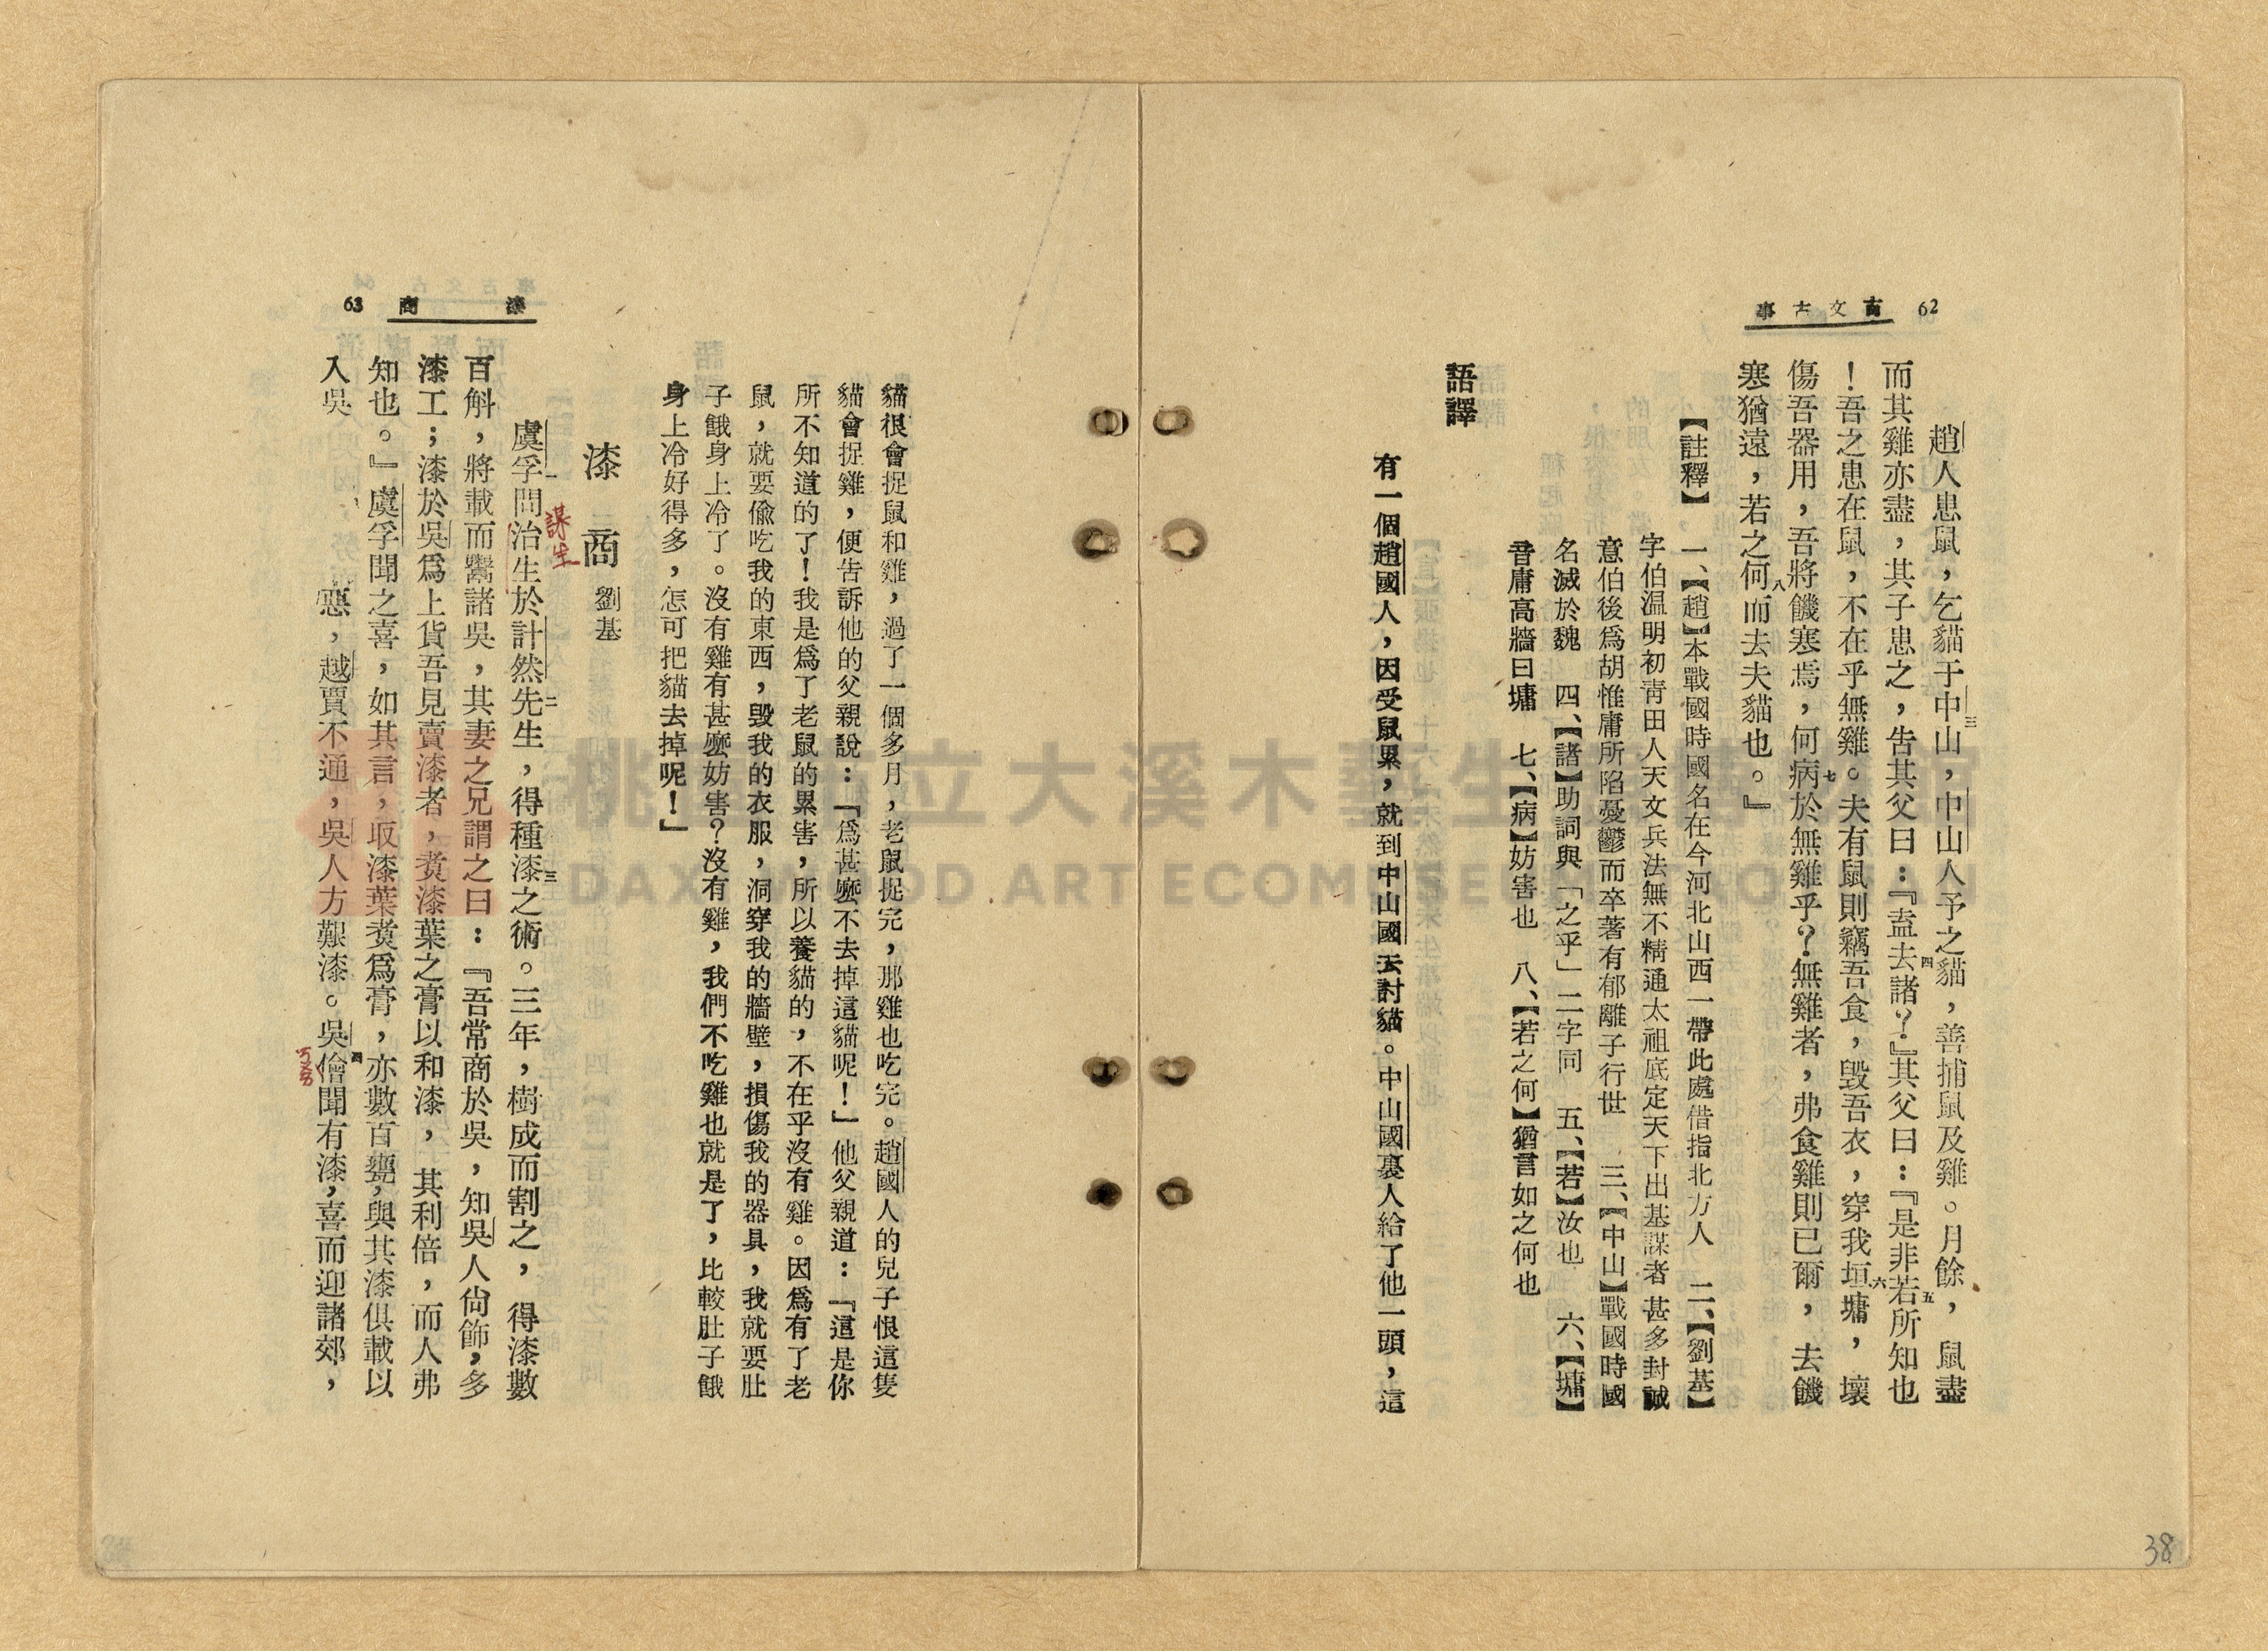 62 事古文言
趙人患鼠，乞貓于中山，中山人予之貓，善捕鼠及雞。月餘，鼠盡
而其雞亦盡，其子患之，告其父曰：『盍去諸？』其父曰：『是非若所知也
！吾之患在鼠，不在乎無雞。夫有鼠則竊吾食，毀吾衣，穿我垣墉，壞
傷吾器用，吾將饑寒焉，何病於無雞乎？無雞者，弗食雞則已爾，去饑
寒猶遠，若之何而去夫貓也。』
【註釋】　一、【趙】本戰國時國名在今河北山西一帶此處借指北方人　二、【劉基】
字伯溫明初青田人天文兵法無不精通太祖底定天下出基謀者甚多封誠
意伯後爲胡惟庸所陷憂鬱而卒著有郁離子行世　三、【中山】戰國時國
名滅於魏　四、【諸】助詞與「之乎」二字同　五、【若】汝也　六、【墉】
音庸高牆曰墉　七、【病】妨害也　八、【若之何】猶言如之何也
語譯
有一個趙國人，因受鼠累，就到中山國去討貓。中山國裏人給了他一頭，這
38
漆商 63
貓很會捉鼠和雞，過了一個多月，老鼠捉完，那雞也吃完。趙國人的兒子恨這隻
貓會捉雞，便告訴他的父親說：「爲甚麼不去掉這貓呢！」他父親道：「這是你
所不知道的了！我是爲了老鼠的累害，所以養貓的，不在乎沒有雞。因爲有了老
鼠，就要偸吃我的東西，毀我的衣服，洞穿我的牆壁，損傷我的器具，我就要肚
子餓身上冷了。沒有雞有甚麼妨害？沒有雞，我們不吃雞也就是了，比較肚子餓
身上冷好得多，怎可把貓去掉呢！」
漆商　劉基
虞孚問治生於計然先生，得種漆之術。三年，樹成而割之，得漆數
謀生
百斛，將載而鬻諸吳，其妻之兄謂之曰：『吾常商於吳，知吳人尙飾，多
漆工；漆於吳爲上貨吾見賣漆者，煮漆葉之膏以和漆，其利倍，而人弗
知也。』虞孚聞之喜，如其言，取漆葉煮爲膏，亦數百甕，與其漆俱載以
入吳　　惡，越賈不通，吳人方艱漆。吳儈聞有漆，喜而迎諸郊，
ㄎㄨㄞ
桃園市立大溪木藝生態博物館
DAXI WOOD ART ECOMUSEUM, TAOYUAN